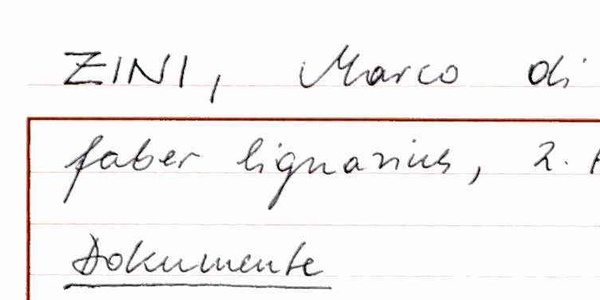 ZINI, Marco di
faber lignarius, 2.
Dokumente